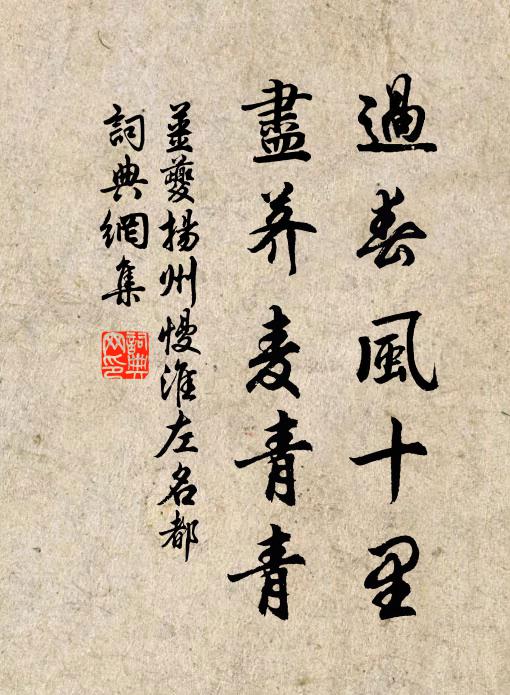 過春風十里
盡荞麦青青
姜夔揚州慢淮左名都
詞典網集
詞典網印